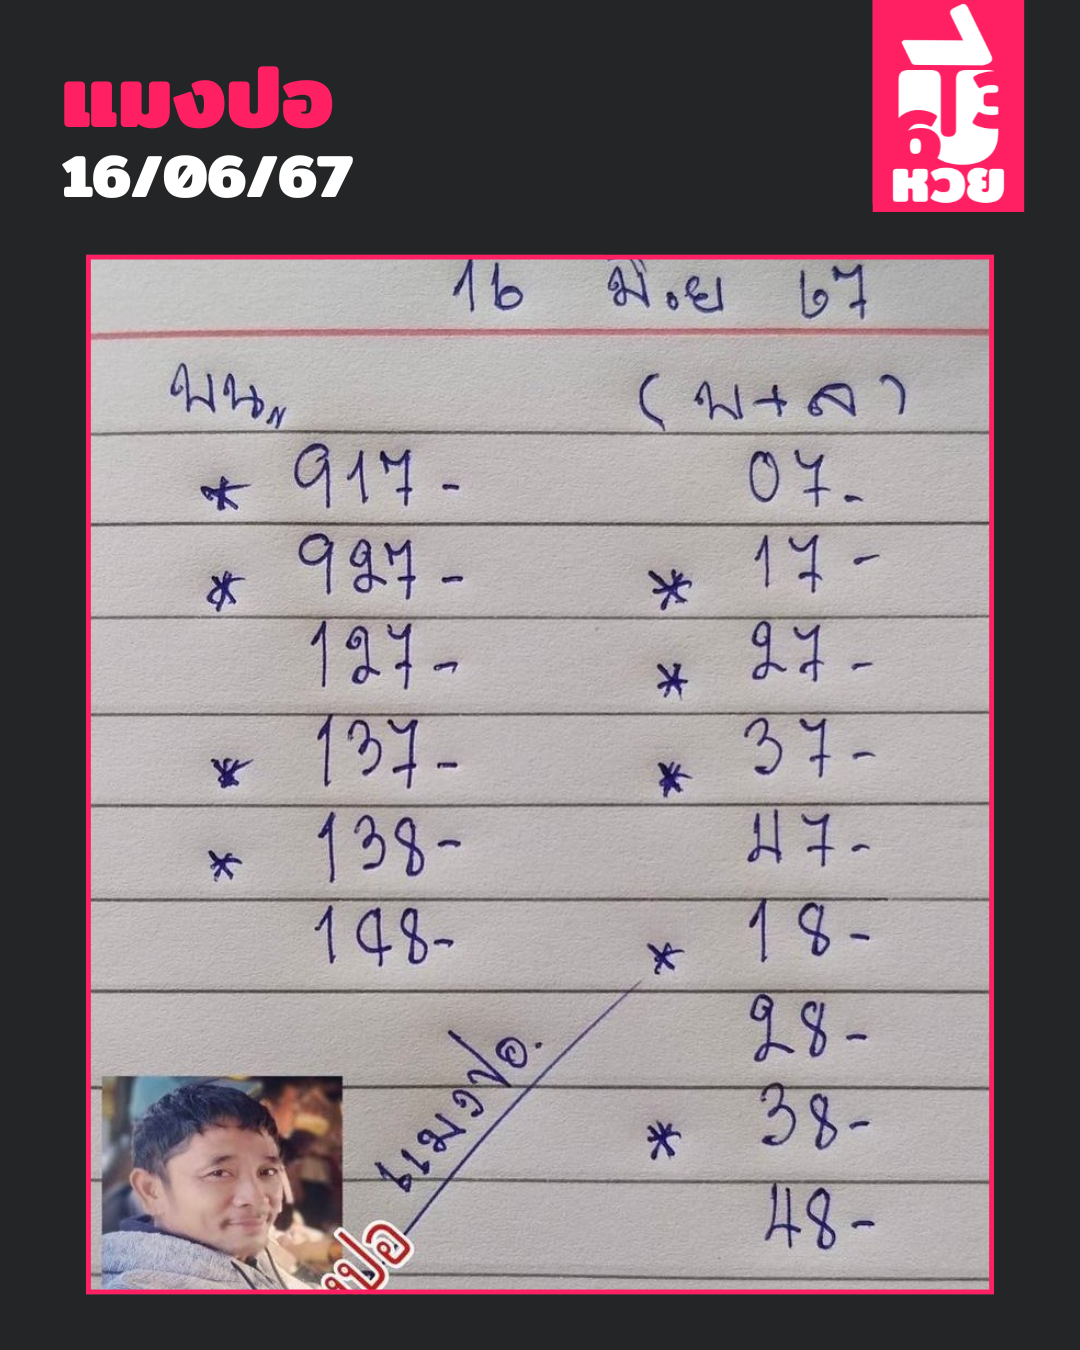 แมงปอ
16/06/67
หวย
16 มิ.ย 67
บน
(บ+ล)
* 917-
07-
* 927-
* 17-
127-
* 27-
* 137-
* 37-
* 138-
47-
148-
* 18-
28-
* 38-
48-
แมงปอ.
งปอ